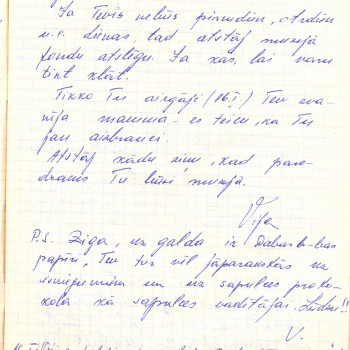 Ja Tevis nebūs pirmdien, otrdien
u.c. dienas, tad atstāj muzejā
fondu atslēgu. Ja kas, lai varu
tikt klāt.
Tikko Tu aizgāji (16.I.) Tev zva-
nīja mamma - es teicu, ka Tu
jau aizbrauci.
Atstāj kādu ziņu, kad para-
dzams Tu būsi muzejā.
P.S. Ziga, uz galda ir
papīri, Tev tur vēl jāparakstās uz
un uz sapulces proto-
kola kā sapulces vadītājai. Lūdzu!!
V.